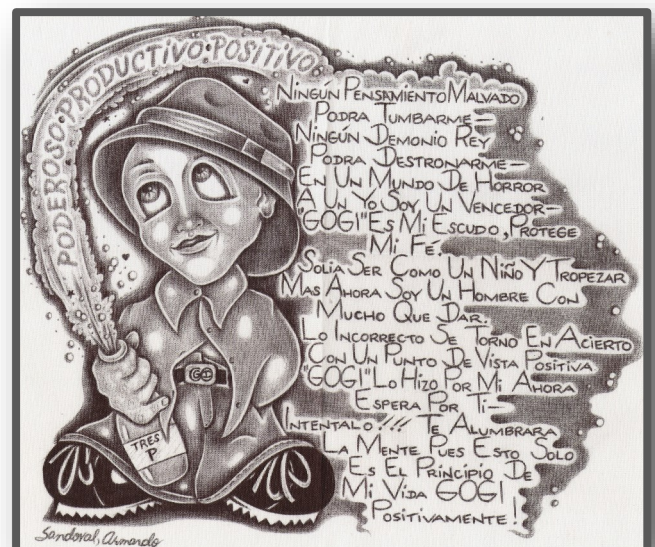 PODEROSO•PRODUCTIVO•POSITIVO
NINGÚN PENSAMIENTO MALVADO
PODRA TUMBARME—
NINGÚN DEMONIO REY
PODRA DESTRONARME—
EN UN MUNDO DE HORROR
A UN YO SOY UN VENCEDOR—
"GOGI" ES MI ESCUDO, PROTEGE
MI FÉ.
SOLIA SER COMO UN NIÑO Y TROPEZAR
MAS AHORA SOY UN HOMBRE CON
MUCHO QUE DAR.
LO INCORRECTO SE TORNO EN ACIERTO
CON UN PUNTO DE VISTA POSITIVA
"GOGI" LO HIZO POR MI AHORA
ESPERA POR TI—
INTENTALO!!! TE ALUMBRARA
LA MENTE PUES ESTO SOLO
ES EL PRINCIPIO DE
MI VIDA GOGI
POSITIVAMENTE!
GO
TRES
P
Sandoval, Armando